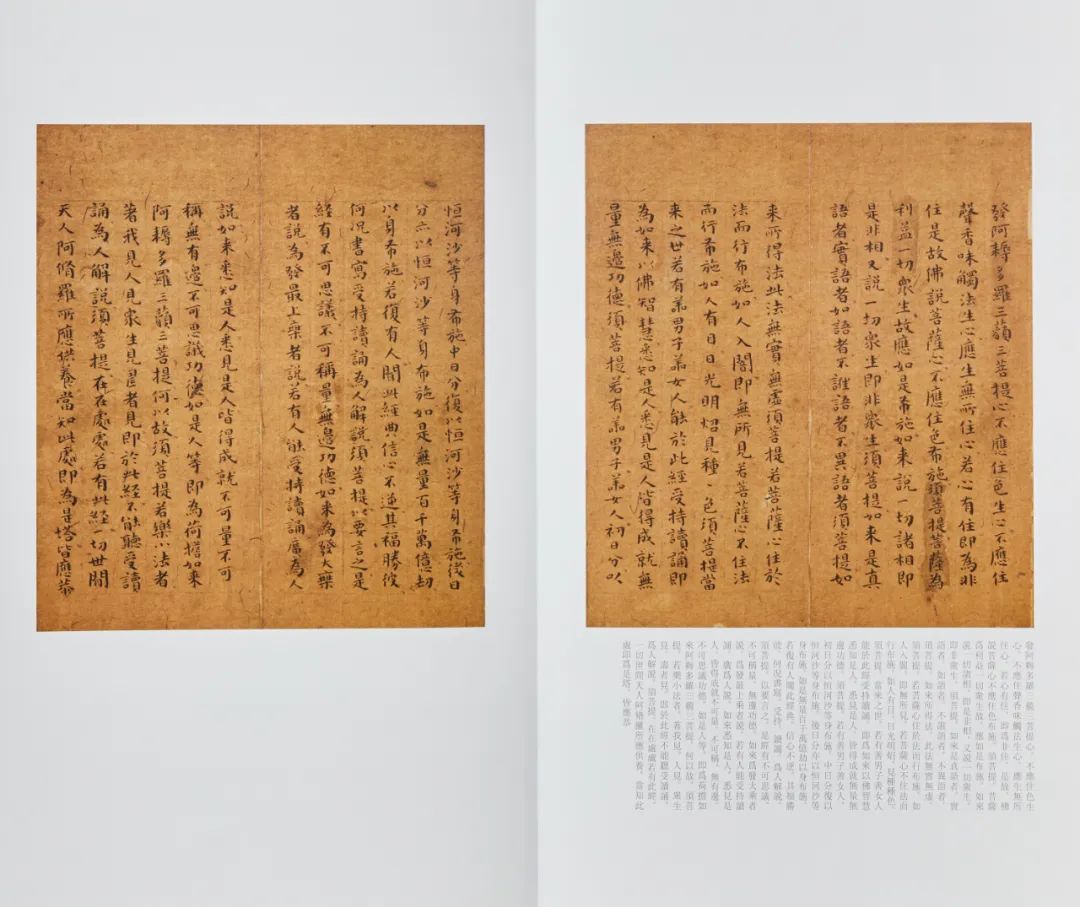 發阿耨多羅三藐三菩提心不應住色生心不應住
聲香味觸法生心應生無所住心若心有住即為非
住是故佛說菩薩心不應住色布施須菩提菩薩為
利益一切衆生故應如是布施如来說一切諸相即
是非相又說一切衆生即非衆生須菩提如来是真
語者實語者如語者不誑語者不異語者須菩提如
来所得法此法無實無虛須菩提若菩薩心住於
法而行布施如人入闇即無所見若菩薩心不住法
而行布施如人有目日光明照見種〻色須菩提當
来之世若有善男子善女人能於此經受持讀誦即
為如来以佛智慧悉知是人悉見是人皆得成就無
量無邊功德須菩提若有善男子善女人初日分以
恒河沙等身布施中日分復以恒河沙等身布施後日
分亦以恒河沙等身布施如是無量百千萬億劫
以身布施若復有人聞此經典信心不逆其福勝彼
何況書寫受持讀誦為人解說須菩提以要言之是
經有不可思議不可稱量無邊功德如来為發大乘
者說為發最上乘者說若有人能受持讀誦廣為人
說如来悉知是人悉見是人皆得成就不可量不可
稱無有邊不可思議功德如是人等即為荷擔如来
阿耨多羅三藐三菩提何以故須菩提若樂小法者
著我見人見衆生見壽者見即於此經不能聽受讀
誦為人解說須菩提在在處處若有此經一切世間
天人阿脩羅所應供養當知此處即為是塔皆應恭
發阿耨多羅三藐三菩提心，不應住色生
心，不應住聲香味觸法生心，應生無所
住心。若心有住，即爲非住。是故，佛
說菩薩心不應住色布施。須菩提，菩薩
爲利益一切衆生故，應如是布施。如來
說一切諸相，即是非相。又說一切衆生，
即非衆生。須菩提，如來是真語者，實
語者，如語者，不誑語者，不異語者。
須菩提，如來所得法，此法無實無虛。
須菩提，若菩薩心住於法而行布施，如
人入闇，即無所見。若菩薩心不住法而
行布施，如人有目，日光明照，見種種色。
須菩提，當來之世，若有善男子善女人
能於此經受持讀誦，即爲如來以佛智慧
悉知是人，悉見是人，皆得成就無量無
邊功德。須菩提，若有善男子善女人，
初日分以恒河沙等身布施，中日分復以
恒河沙等身布施，後日分亦以恒河沙等
身布施，如是無量百千萬億劫以身布施。
若復有人聞此經典，信心不逆，其福勝
彼，何況書寫、受持、讀誦、爲人解說。
須菩提，以要言之，是經有不可思議、
不可稱量、無邊功德。如來爲發大乘者
說，爲發最上乘者說。若有人能受持讀
誦，廣爲人說，如來悉知是人，悉見是
人，皆得成就不可量、不可稱、無有邊、
不可思議功德。如是人等，即爲荷擔如
來阿耨多羅三藐三菩提。何以故，須菩
提，若樂小法者，著我見、人見、衆生
見、壽者見，即於此經不能聽受讀誦、
爲人解說。須菩提，在在處處若有此經，
一切世間天人阿脩羅所應供養，當知此
處即爲是塔，皆應恭